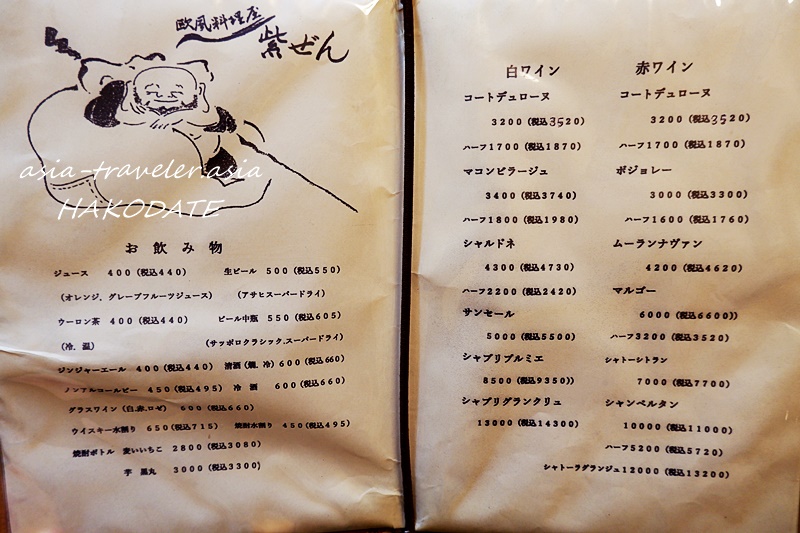 欧風料理屋
紫ぜん
asia-traveler.asia
HAKODATE
お飲み物
ジュース 400(税込440) 生ビール 500(税込550)
(オレンジ、グレープフルーツジュース) (アサヒスーパードライ)
ウーロン茶 400(税込440) ビール中瓶 550(税込605)
(冷、温) (サッポロクラシック.スーパードライ)
ジンジャーエール 400(税込440) 清酒(燗、冷)600(税込660)
ノンアルコールビー 450(税込495) 冷酒 600(税込660)
グラスワイン(白,赤,ロゼ) 600(税込660)
ウイスキー水割り 650(税込715) 焼酎水割り 450(税込495)
焼酎ボトル 麦いいちこ 2800(税込3080)
芋 黒丸 3000(税込3300)
白ワイン
コートデュローヌ
3200(税込3520)
ハーフ1700(税込1870)
マコンビラージュ
3400(税込3740)
ハーフ1800(税込1980)
シャルドネ
4300(税込4730)
ハーフ2200(税込2420)
サンセール
5000(税込5500)
シャブリプルミエ
8500(税込9350))
シャブリグランクリュ
13000(税込14300)
赤ワイン
コートデュローヌ
3200(税込3520)
ハーフ1700(税込1870)
ボジョレー
3000(税込3300)
ハーフ1600(税込1760)
ムーランナヴァン
4200(税込4620)
マルゴー
6000(税込6600))
ハーフ3200(税込3520)
シャトーシトラン
7000(税込7700)
シャンベルタン
10000(税込11000)
ハーフ5200(税込5720)
シャトーラグランジュ12000(税込13200)